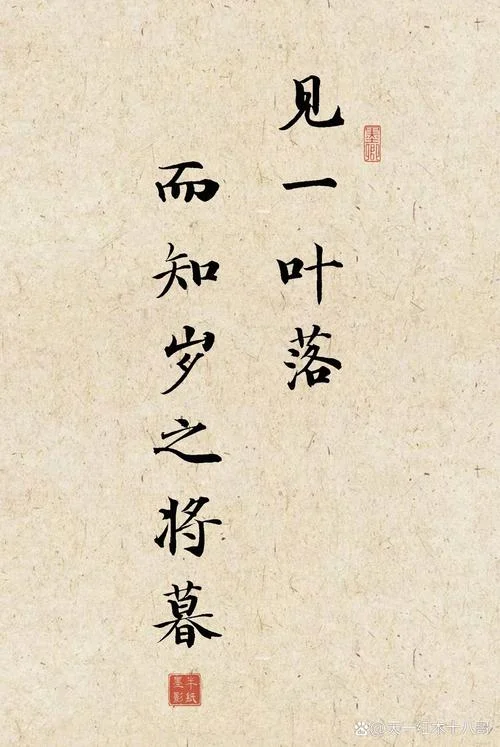 见一叶落
而知岁之将暮
半纸
墨影
@天一红木十八哥